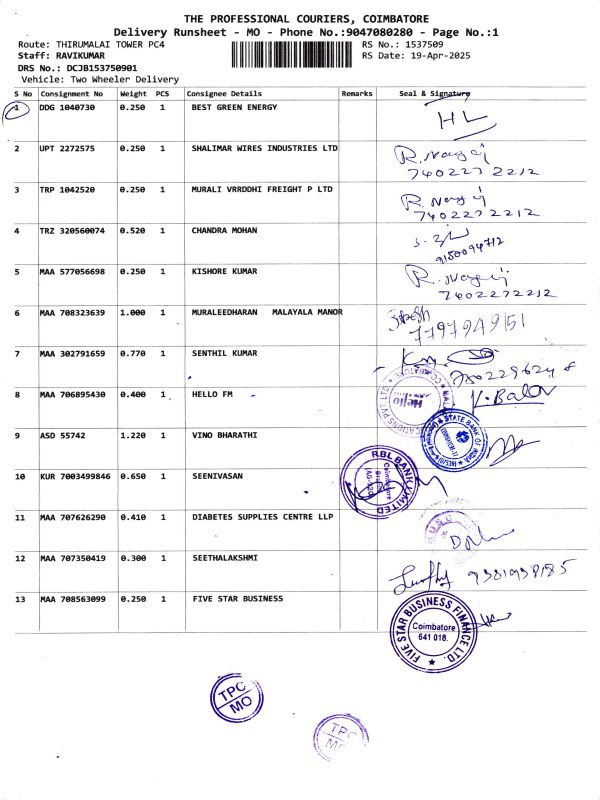 THE PROFESSIONAL COURIERS, COIMBATORE
Delivery Runsheet - MO - Phone No.:9047080280 - Page No.:1
Route: THIRUMALAI TOWER PC4 RS No.: 1537509
Staff: RAVIKUMAR RS Date: 19-Apr-2025
DRS No.: DCJB153750901
Vehicle: Two Wheeler Delivery
S No Consignment No Weight PCS Consignee Details Remarks Seal & Signature
1 DDG 1040730 0.250 1 BEST GREEN ENERGY
HL
2 UPT 2272575 0.250 1 SHALIMAR WIRES INDUSTRIES LTD
7402272212
3 TRP 1042520 0.250 1 MURALI VRRDDHI FREIGHT P LTD
7402272212
4 TRZ 320560074 0.520 1 CHANDRA MOHAN
9150094712
5 MAA 577056698 0.250 1 KISHORE KUMAR
7402272212
6 MAA 708323639 1.000 1 MURALEEDHARAN MALAYALA MANOR
7 MAA 302791659 0.770 1 SENTHIL KUMAR
8 MAA 706895430 0.400 1 HELLO FM
Hello
9 ASD 55742 1.220 1 VINO BHARATHI
STATE BANK OF INDIA
10 KUR 7003499846 0.650 1 SEENIVASAN
RBL BANK LIMITED
Coimbatore
11 MAA 707626290 0.410 1 DIABETES SUPPLIES CENTRE LLP
12 MAA 707350419 0.300 1 SEETHALAKSHMI
13 MAA 708563099 0.250 1 FIVE STAR BUSINESS
FIVE STAR BUSINESS FINANCE LTD.
Coimbatore
641 018.
TPC
MO
TPC
MO